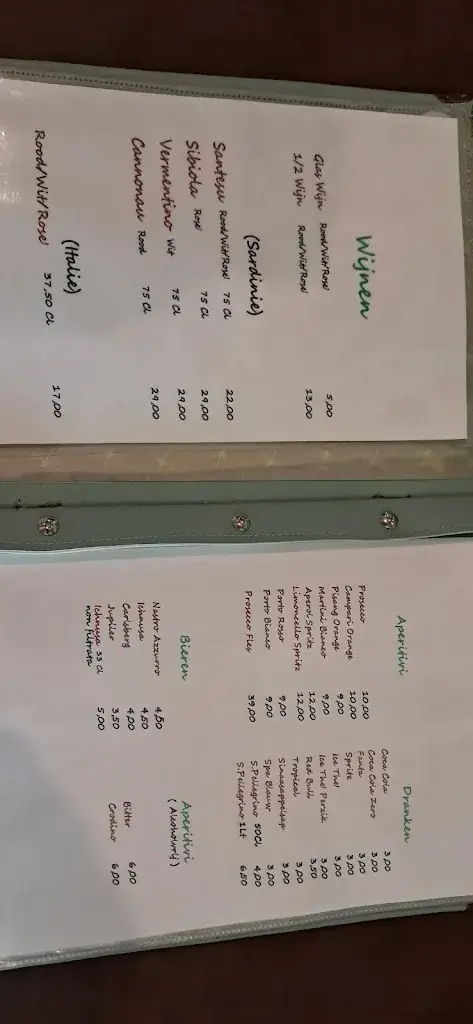 Wijnen
Glas Wijn Rood/Wit/Rosé 5,00
1/2 Wijn Rood/Wit/Rosé 13,00
(Sardinie)
Santesu Rood/Wit/Rosé 75 CL 22,00
Sibiola Rosé 75 CL 29,00
Vermentino Wit 75 CL 29,00
Cannonau Rood 75 CL 29,00
(Italie)
Rood/Wit/Rosé 37,50 CL 17,00
Aperitivi
Prosecco 10,00
Camperi Orange 10,00
Pisang Orange 9,00
Martini Bianco 9,00
Aperol Spritz 12,00
Limoncello Spritz 12,00
Porto Rosso 9,00
Porto Bianco 9,00
Prosecco Fles 39,00
Bieren
Nastro Azzurro 4,50
Ichnusa 4,50
Carlsberg 4,00
Jupiler 3,50
Ichnusa 33 CL 5,00
non filtrata
Dranken
Coca Cola 3,00
Coca Cola Zero 3,00
Fanta 3,00
Sprite 3,00
Ice Thé 3,00
Ice Thé Perzik 3,00
Red Bull 3,50
Tropical 3,00
Sinaasappelsap 3,00
Spa Blauw 3,00
S.Pellegrino 50CL 4,00
S.Pellegrino 1 Lt 6,50
Aperitivi
(Alcoholvrij)
Bitter 6,00
Crodino 6,00